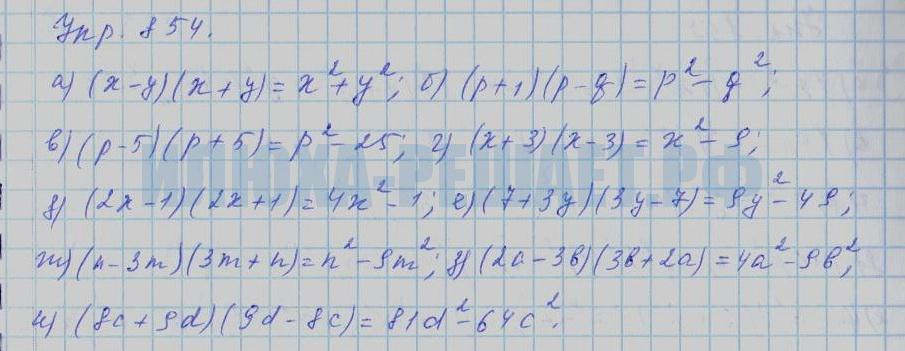 Упр. 854.
а) (x-y)(x+y)=x²+y²; б) (p+1)(p-q)=p²-q²;
в) (p-5)(p+5)=p²-25; г) (x+3)(x-3)=x²-9;
ИЛЮХА-РЕШАЕТ.РФ
д) (2x-1)(2x+1)=4x²-1; е) (7+3y)(3y-7)=9y²-49;
ж) (n-3m)(3m+n)=n²-9m²; з) (2a-3b)(3b+2a)=4a²-9b²;
и) (8c+9d)(9d-8c)=81d²-64c².